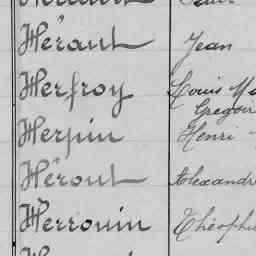 Héraul Jean
Herfroy Louis
Grégoir
Herpin Henri
Héroul Alexandre
Herrouin Théophi